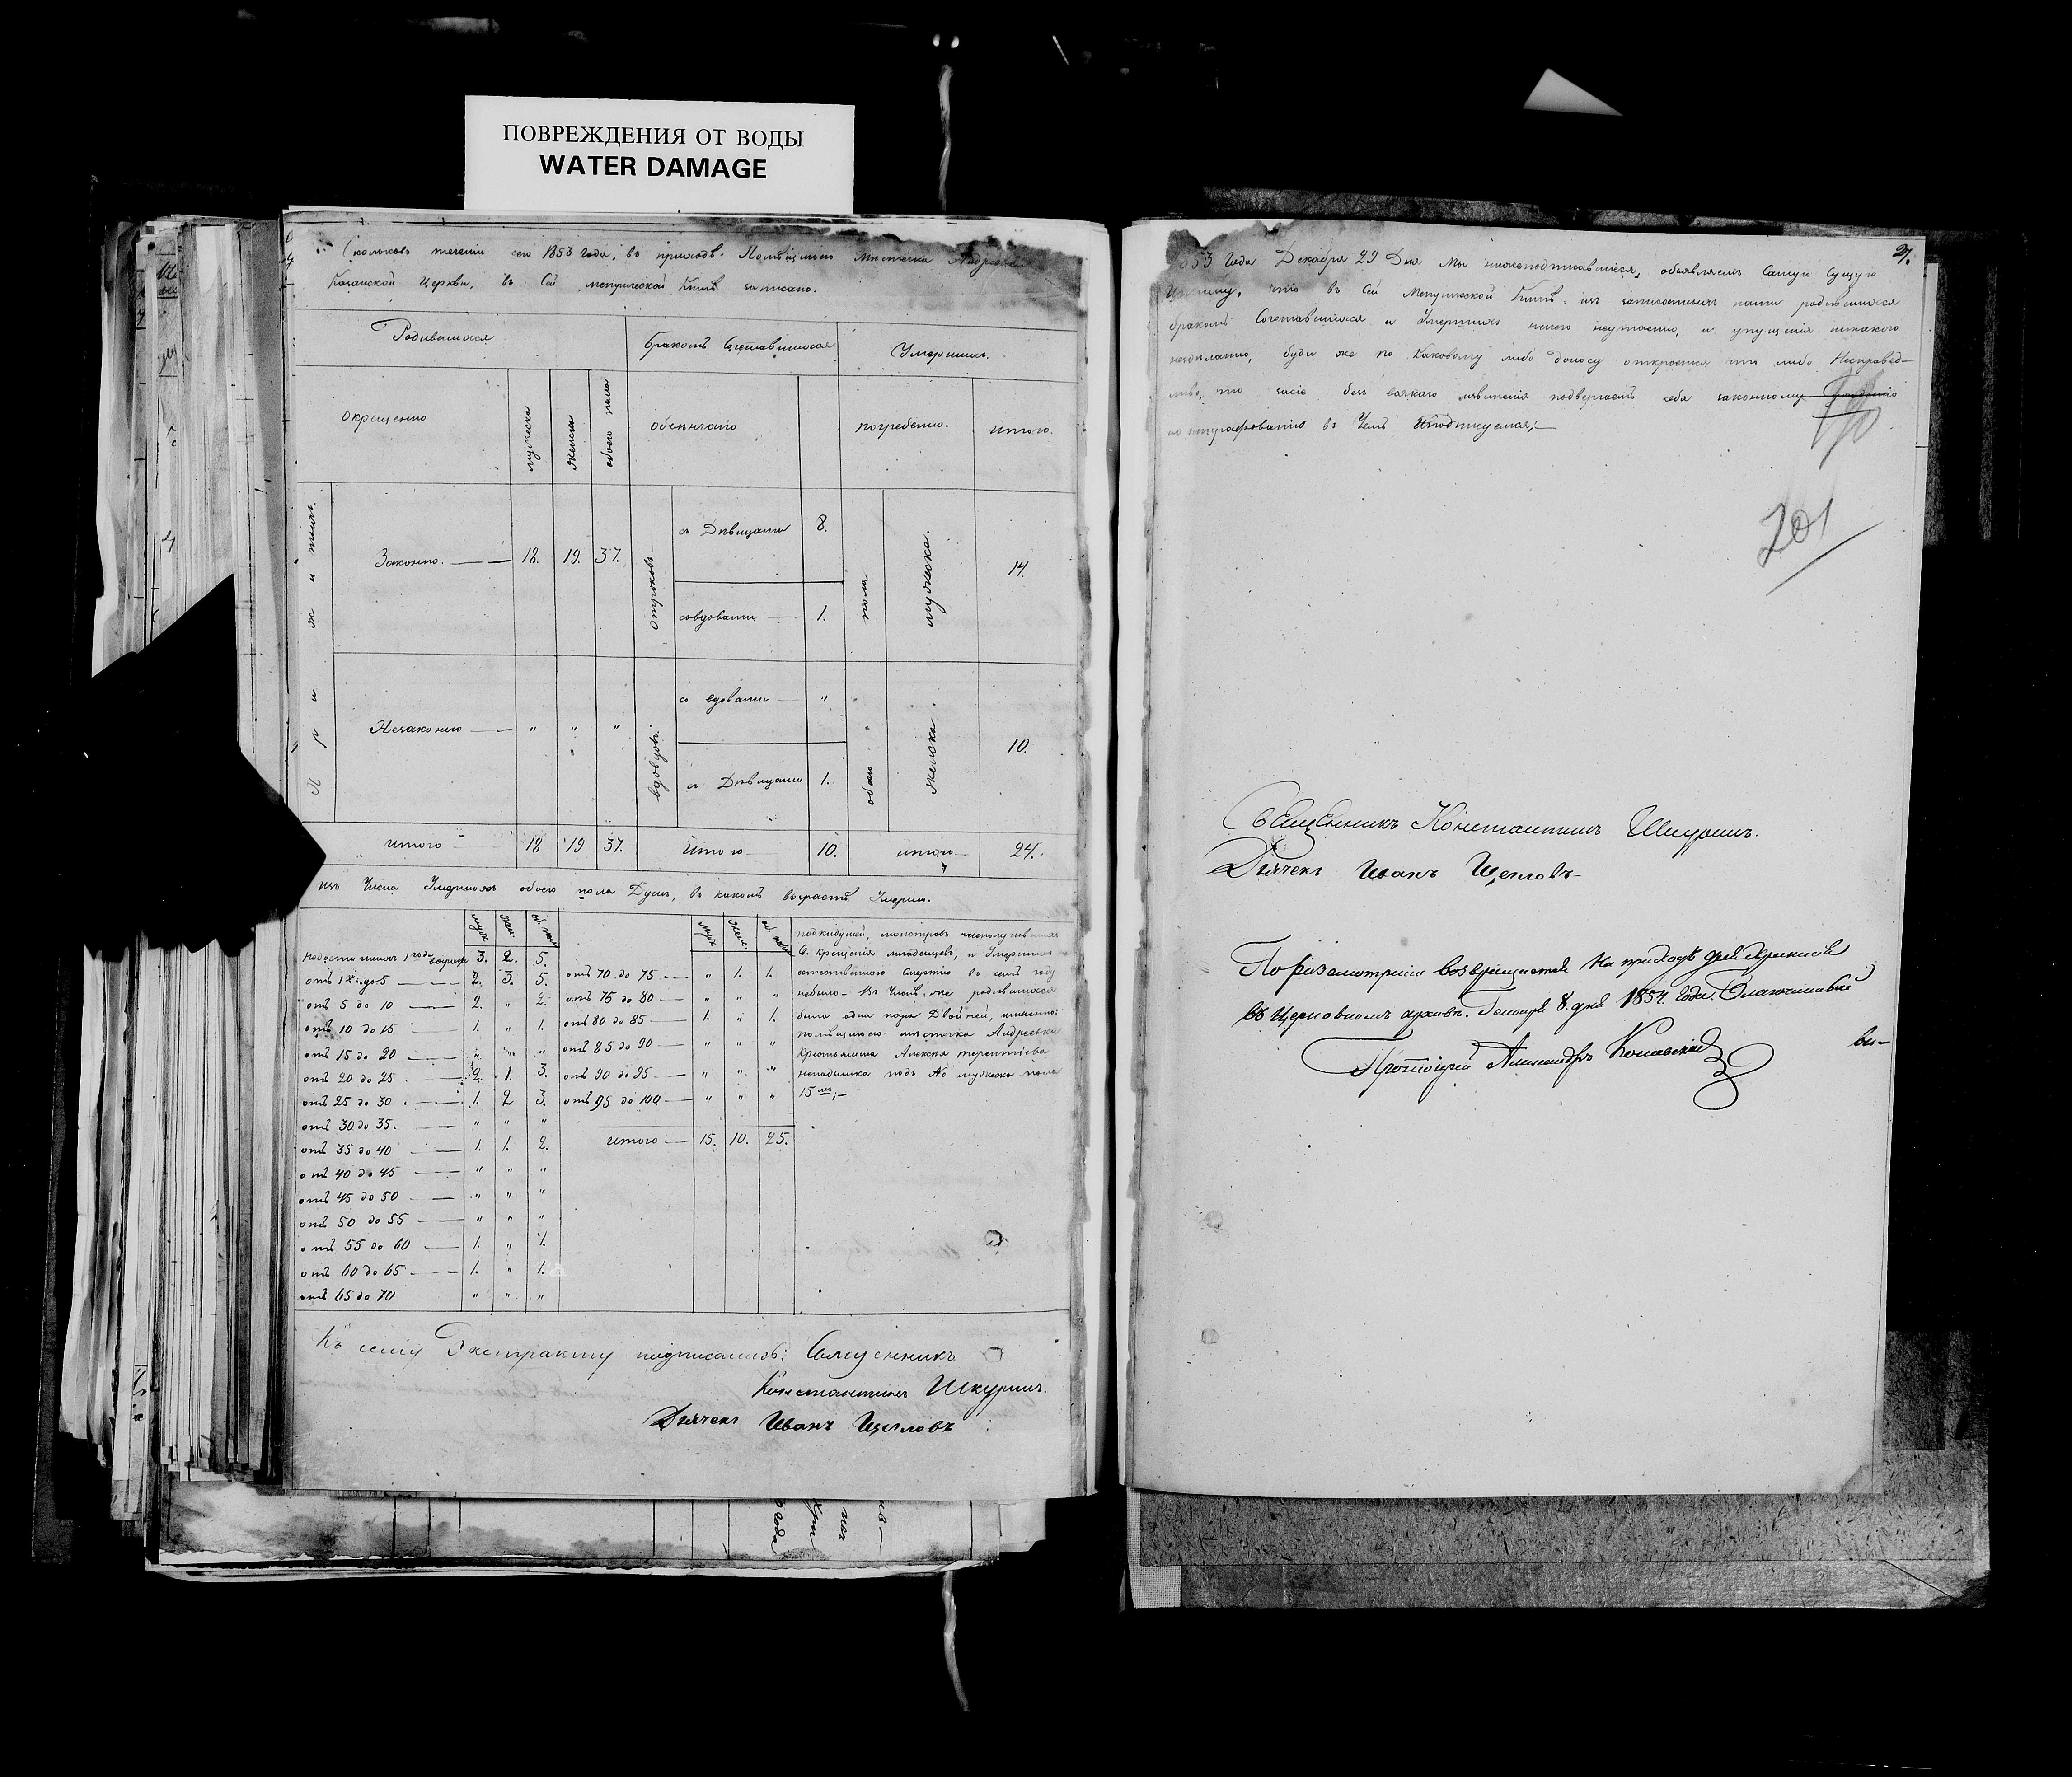 ПОВРЕЖДЕНИЯ ОТ ВОДЫ
WATER DAMAGE
Сколько въ теченіи сего 1853 года, въ приходѣ Помѣщичьего Мистечка Андреевки
Казанской Церкви, въ Сей метрической Книгѣ записано.
Родившихся
бракомъ Сочетавшихся
Умершихъ.
Окрещенно
мужеска
женска
обоего пола
обвенчано
погребено.
итого.
Прихожанъ
Законно. 18. 19. 37.
отроковъ
съ Дѣвицами 8.
со вдовами 1.
обоего пола
мужеска.
14.
Незаконно " " "
вдовцовъ.
со вдовами "
съ Дѣвицами 1.
женска.
10.
итого 18 19 37. Итого 10. итого 24.
изъ Числа Умершихъ обоего пола Душъ, въ какомъ возрастѣ Умерли.
муж. жен. об. пола
недостигшихъ 1 года возраст 3. 2. 5.
отъ 1 до 5 2. 3. 5.
отъ 5 до 10 2. " 2.
отъ 10 до 15 1. " 1.
отъ 15 до 20 " " "
отъ 20 до 25 2. 1. 3.
отъ 25 до 30 1. 2 3.
отъ 30 до 35. " " "
отъ 35 до 40 1. 1. 2.
отъ 40 до 45 " " "
отъ 45 до 50 " " "
отъ 50 до 55 " " "
отъ 55 до 60 1. " 1.
отъ 60 до 65 1. " 1.
отъ 65 до 70 " " "
муж. жен. об. пола
отъ 70 до 75 " 1. 1.
отъ 75 до 80 " " "
отъ 80 до 85 1. " 1.
отъ 85 до 90 " " "
отъ 90 до 95 " " "
отъ 95 до 100 " " "
итого 15. 10. 25.
подкидушей, монстровъ неполучившихъ
С. Крещенія младенцовъ, и Умершихъ
естественною Смертію въ семъ году
небыло — Въ Числѣ же родившихся
была одна пара Двойней, именно:
помѣщичьего мистечка Андреевки
Крестьянина Алексѣя терентіева
подъ № мужеска пола
15
Къ сему Экстракту подписались: Священникъ
Константинъ Шкуринъ.
Дьячекъ Иванъ Щегловъ
27.
1853 Года Декабря 29 Дня Мы нижеподписавшіеся, объявляемъ Самую Сущую
Истинну, что въ Сей Метрической Книгѣ, изъ записанныхъ нами родившихся
бракомъ Сочетавшихся и Умершихъ ничего неутаенно, и упущенія никакого
буди же по Каковому либо доносу откроется что либо Несправед-
ливо, то засіе безъ всякаго извиненія подвергаемъ себя законному
въ Чемъ и подписуемся;—
201
Священникъ Константинъ Шкуринъ.
Дьячекъ Иванъ Щегловъ
По розсмотреніи возвращается на приходъ для храненія
въ Церковномъ архивѣ. Генваря 8. дня 1854. Года. Благочинный
Протоіерей Александръ